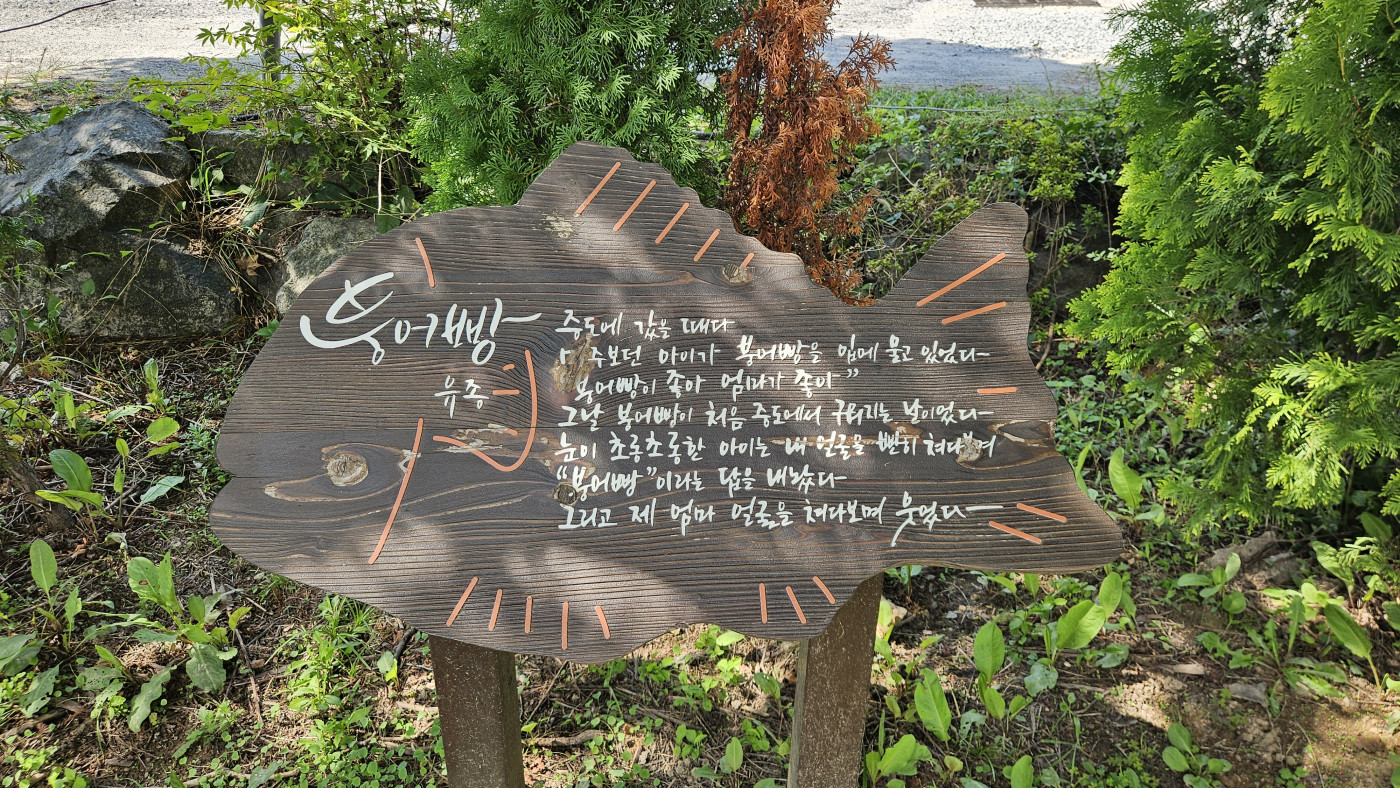 붕어빵
유종
중도에 갔을 때다
마주보던 아이가 붕어빵을 입에 물고 있었다
붕어빵이 좋아 엄마가 좋아”
그날 붕어빵이 처음 중도에서 구워지는 날이었다
눈이 초롱초롱한 아이는 내 얼굴을 빤히 쳐다보며
“붕어빵”이라는 답을 내놨다
그리고 제 엄마 얼굴을 쳐다보며 웃었다